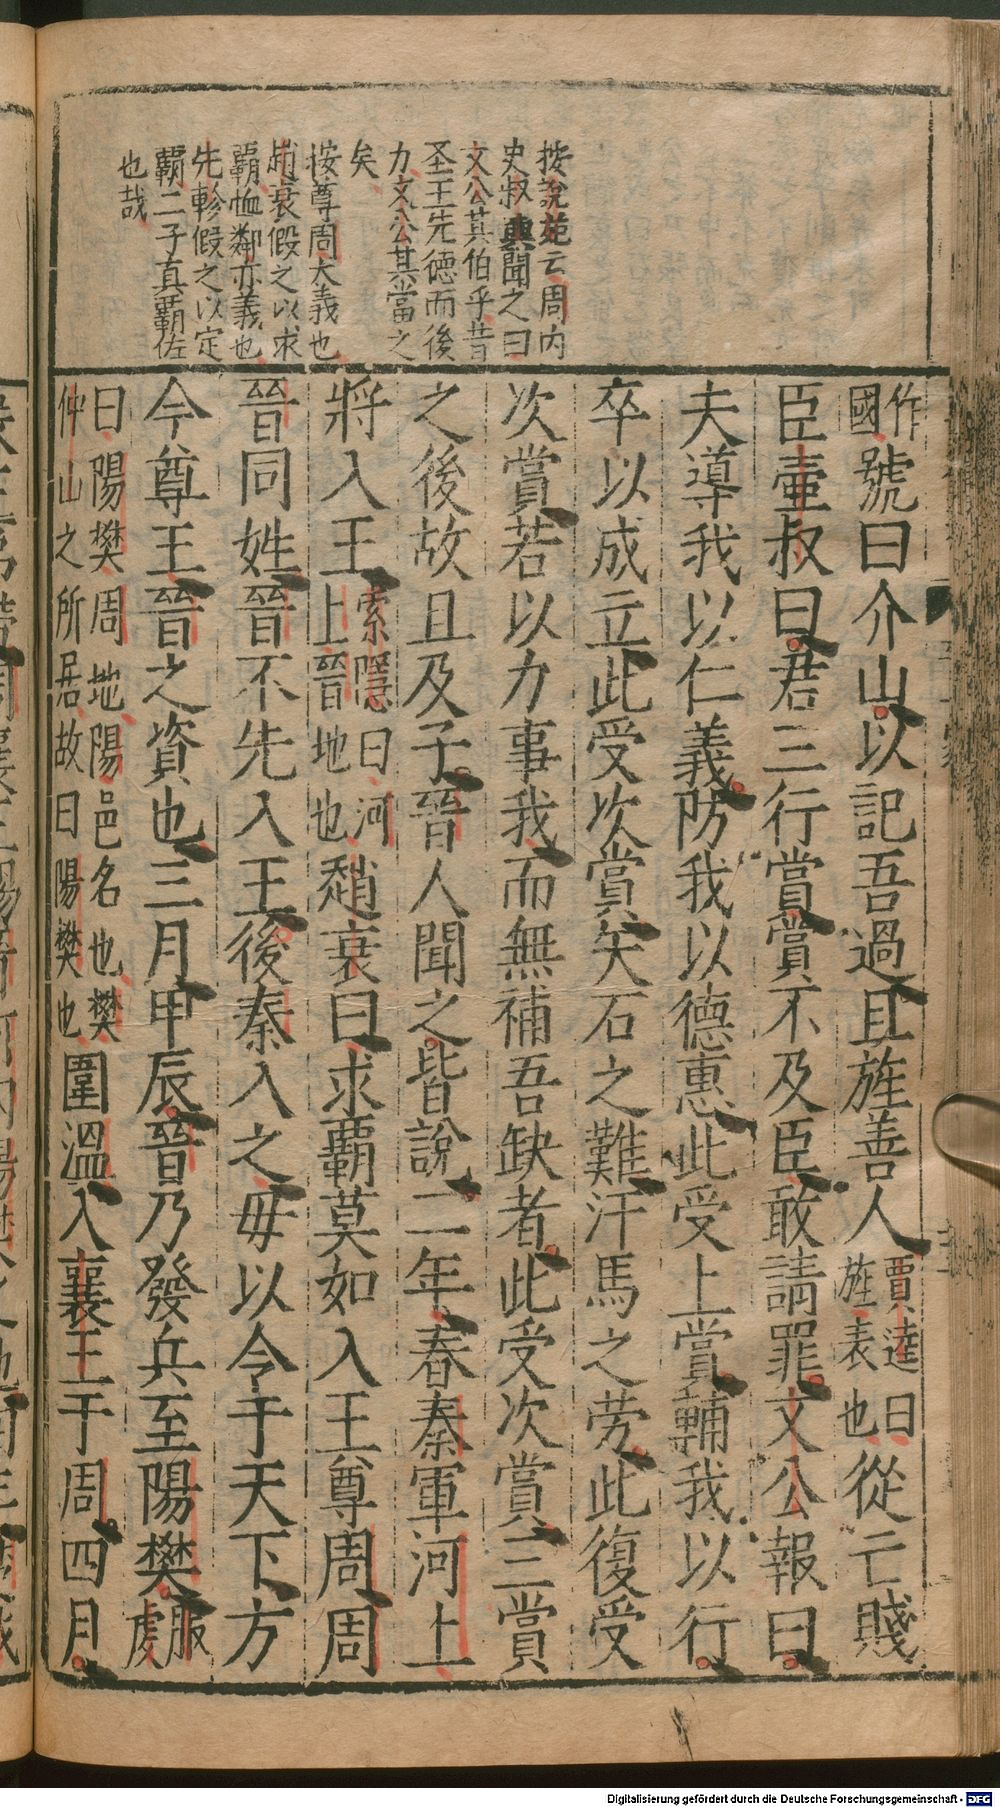 按說苑云周内
史叔興聞之曰
文公其伯乎昔
圣王先德而後
力文公其當之
矣
按尊周大義也
趙衰假之以求
覇恤鄰亦義也
先軫假之以定
覇二子真覇佐
也哉
作國號曰介山以記吾過且旌善人賈逵曰旌表也從亡賤
臣壷叔曰君三行賞賞不及臣敢請罪文公報曰
夫導我以仁義防我以德惠此受上賞輔我以行
卒以成立此受次賞矢石之難汗馬之劳此復受
次賞若以力事我而無補吾缺者此受次賞三賞
之後故且及子晉人聞之皆說二年春秦軍河上
將入王索隱曰河上晉地也趙衰曰求覇莫如入王尊周周
晉同姓晉不先入王後秦入之毋以令于天下方
今尊王晉之資也三月甲辰晉乃發兵至陽樊服虔
曰陽樊周地陽邑名也樊仲山之所居故曰陽樊也圍溫入襄王于周四月
Digitalisierung gefördert durch die Deutsche Forschungsgemeinschaft - DFG